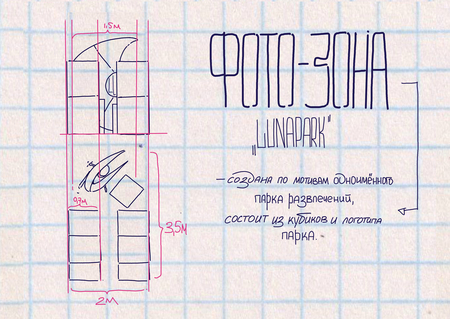 1,5м
ФОТО-ЗОНА
„LUNAPARK"
- СОЗДАНА ПО МОТИВАМ ОДНОИМЁННОГО
ПАРКА РАЗВЛЕЧЕНИЙ,
СОСТОИТ ИЗ КУБИКОВ И ЛОГОТИПА
ПАРКА.
0,7м
3,5м
2м